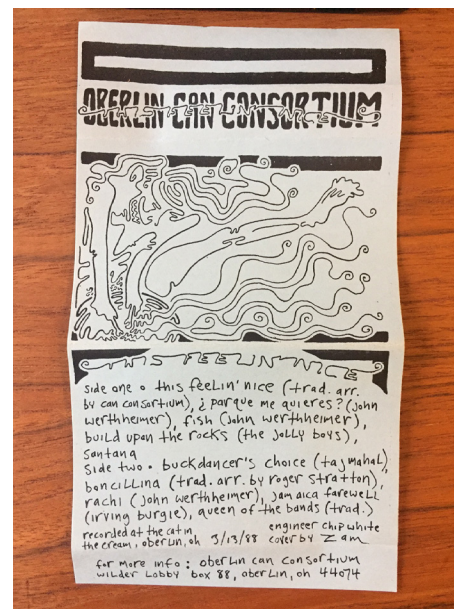 OBERLIN CAN CONSORTIUM
THIS FEELIN' NICE
THIS FEELIN' NICE
side one • this feelin' nice (trad. arr.
by can consortium), ¿ parque me quieres? (john
werthheimer), fish (john werthheimer),
build upon the rocks (the jolly boys),
santana
side two • buckdancer's choice (taj mahal),
boncillina (trad. arr. by roger stratton),
rachi (john werthheimer), jamaica farewell
(irving burgie), queen of the bands (trad.)
recorded at the cat in engineer chip white
the cream, oberlin, oh 3/13/88 cover by zam
for more info : oberlin can consortium
wilder lobby box 88, oberlin, oh 44074